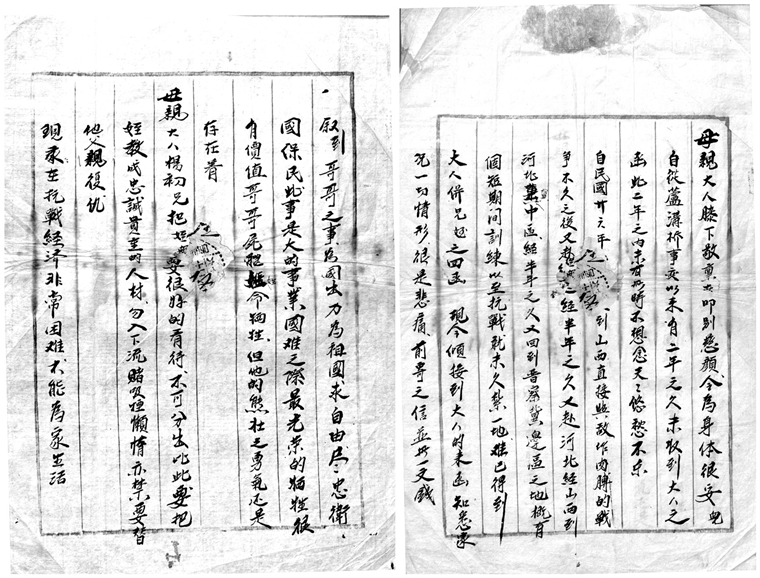 母親大人膝下敬稟者叩别慈顔今為身体很妥也
自從蘆溝桥事变以来有二年之久未收到大人之
函此二年之内未有一時不想念天天悠愁不乐
自民國廿六年 到山西直接与敌作肉膊的戰
争不久之後又 经半年之久又赴河北经山西到
河北冀中區经半年之久又回到晋察冀邊區之地概有
個短期间訓練以至抗戰就未久紮一地难已得到
大人併兄 之回函 现今傾接到大人的来函知悉家
况一切情形很是悲痛前寄之信並 一文錢
叙到哥哥之事為國出力為祖國求自由尽忠衛
國保民此事是大的事業國难之際最光荣的牺牲很
有價值哥哥虽把 命牺牲但他的熊壮之勇氣还是
存在着
母親大人楊初兄把侄 要很好的看待不可分出比此要把
侄教成忠誠貫至的人材勿入下流賭 懒惰 要替
他父親復仇
现家在抗戰经济非常困难不能為家生活